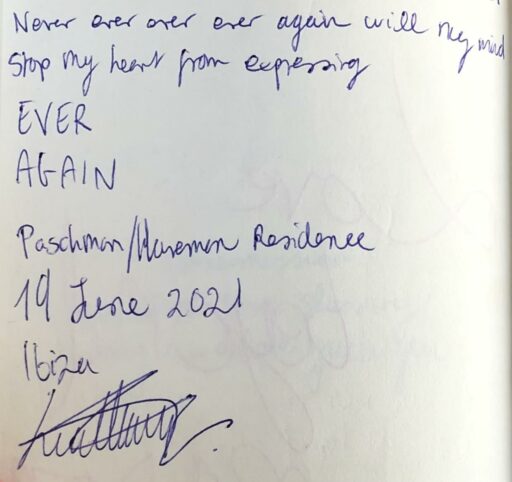 Never ever ever ever again will my mind
Stop my heart from expressing
EVER
AGAIN
Paschman/ Residence
19 June 2021
Ibiza